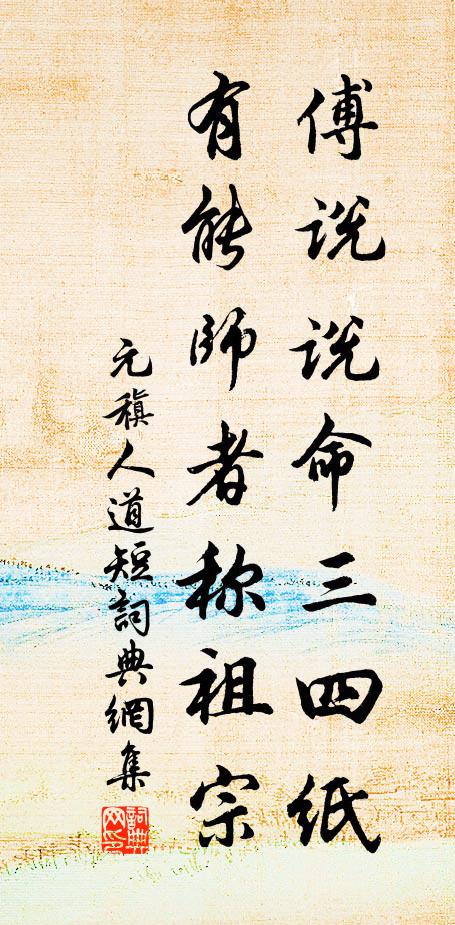 傅说说命三四纸
有能師者称祖宗
元稹人道短詞典網集
詞典網印